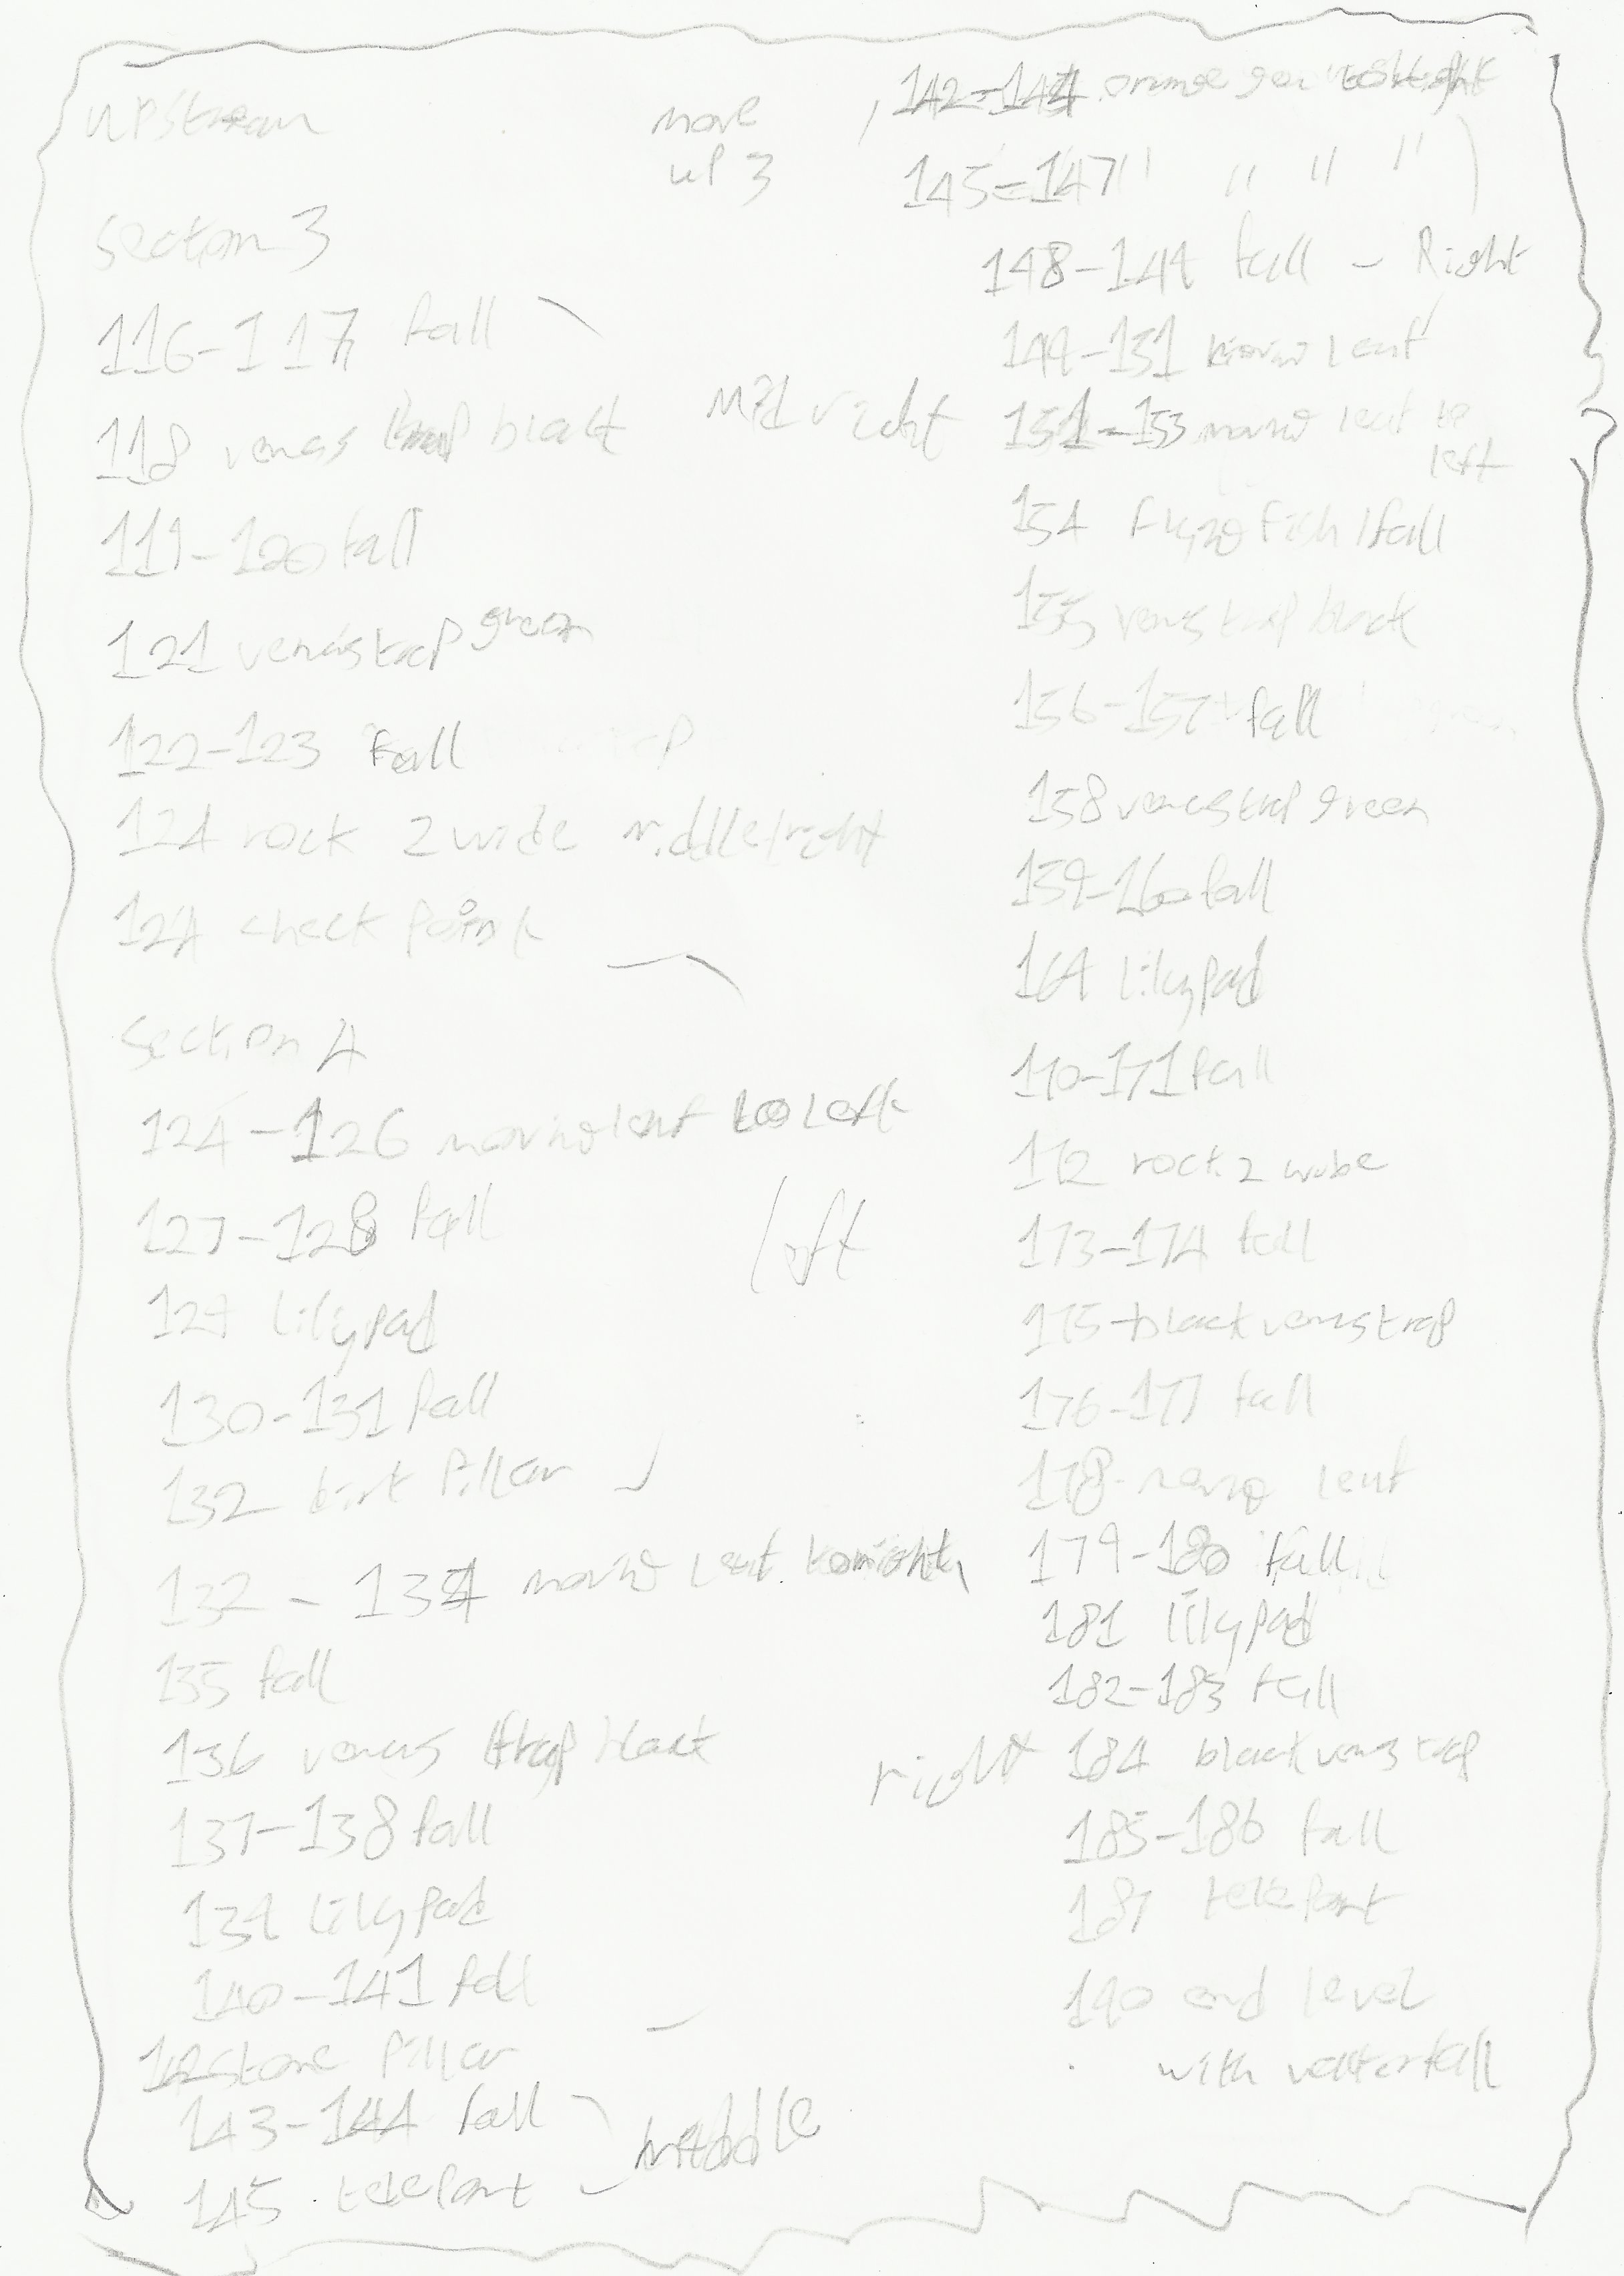 UPStream
move
up 3
Section 3
116-117 fall
118 venus trap black
mid right
119-120 fall
121 venustrap green
122-123 Fall
124 rock 2 wide middle/right
124 check point
Section 4
124-126 moving leaf to left
127-128 fall
left
129 lilypad
130-131 fall
132 dirt Pillar
132-134 moving leaf to right
135 fall
136 venus trap black
137-138 fall
139 lilypad
140-141 fall
142 stone Pillar
143-144 fall
middle
145 telePort
142-144 orange
145-147 " " " "
148-149 fall - Right
149-151 moving leaf
151-153 moving leaf to
left
154 flying fish/fall
155 venus trap black
156-157 fall
158 venustrap green
159-160 fall
164 lilypad
170-171 fall
172 rock 2 wide
173-174 fall
175-black venustrap
176-177 fall
178-moving leaf
179-180 fall
181 lilypad
182-183 fall
right
184 black venus trap
185-186 fall
187 telePort
190 end level
with waterfall